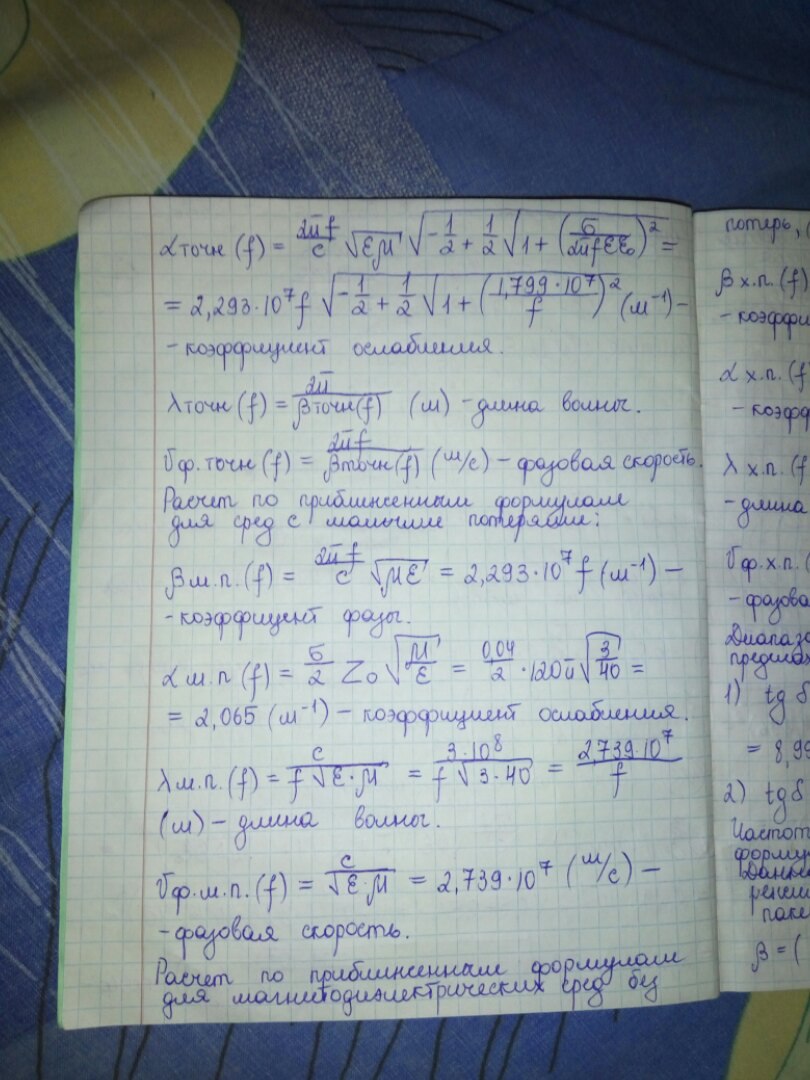 αточн (f) = 2πf/c √εμ √(-1/2 + 1/2 √(1 + (σ/2πfεε₀)²)) =
= 2,293·10⁷f √(-1/2 + 1/2 √(1 + (1,799·10⁷/f)²)) (м⁻¹) –
- коэффициент ослабления.
λточн (f) = 2π/βточн(f) (м) - длина волны.
Vф.точн (f) = 2πf/βточн(f) (м/с) – фазовая скорость.
Расчет по приближенным формулам
для сред с малыми потерями:
βм.п. (f) = 2πf/c √με = 2,293·10⁷ f (м⁻¹) –
- коэффицент фазы.
αм.п (f) = σ/2 Z₀ √(μ/ε) = 0,04/2 · 120π √(3/40) =
= 2,065 (м⁻¹) – коэффициент ослабления.
λм.п. (f) = c/(f √ε·μ) = 3·10⁸/(f √3·40) = 2739·10⁷/f
(м) – длина волны.
Vф.м.п. (f) = c/√ε·μ = 2,739·10⁷ (м/с) –
- фазовая скорость.
Расчет по приближенным формулам
для магнитодиэлектрических сред без
потерь, (
βх.п. (f)
- коэффи
αх.п. (f
- коэфф
λх.п. (f
- длина
Vф.х.п. (
- фазова
Диапазо
предела
1) tg δ
= 8,99
2) tg δ
Частот
формул
Данны
реше
паке
β = (